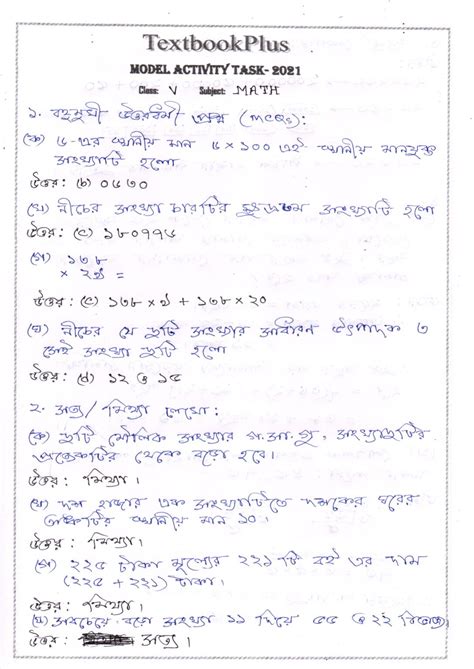 TextbookPlus
MODEL ACTIVITY TASK- 2021
Class: V Subject: MATH
১. বহুমুখী উত্তরধর্মী প্রশ্ন (MCQs):
(ক) ৫-এর স্থানীয় মান ৫×১০০ এই স্থানীয় মানযুক্ত
সংখ্যাটি হলো
উত্তর: (b) ০৫৩০
(খ) নীচের সংখ্যা চারটির ক্ষুদ্রতম সংখ্যাটি হলো
উত্তর: (c) ১৮০৭৭৫
(গ) ১৩৮
× ২৬ =
উত্তর: (c) ১৩৮ × ৬ + ১৩৮ × ২০
(ঘ) নীচের যে দুটি সংখ্যার সাধারণ উৎপাদক ৩
সেই সংখ্যা দুটি হলো
উত্তর: (d) ১২ ও ১৫
২. সত্য/মিথ্যা লেখো:
(ক) দুটি মৌলিক সংখ্যার গ.সা.গু, সংখ্যাদুটির
প্রত্যেকটির থেকে বড়ো হবে।
উত্তর: মিথ্যা।
(খ) দশ হাজার এক সংখ্যাটিতে দশকের ঘরের
অঙ্কটির স্থানীয় মান ১০।
উত্তর: মিথ্যা।
(গ) ২২৫ টাকা মূল্যের ২২১ টি বই এর দাম
(২২৫ + ২২১) টাকা।
উত্তর: মিথ্যা।
(ঘ) সবচেয়ে বড়ো সংখ্যা ১১ দিয়ে ৫৫ ও ২২ বিভাজ্য।
উত্তর: সত্য।